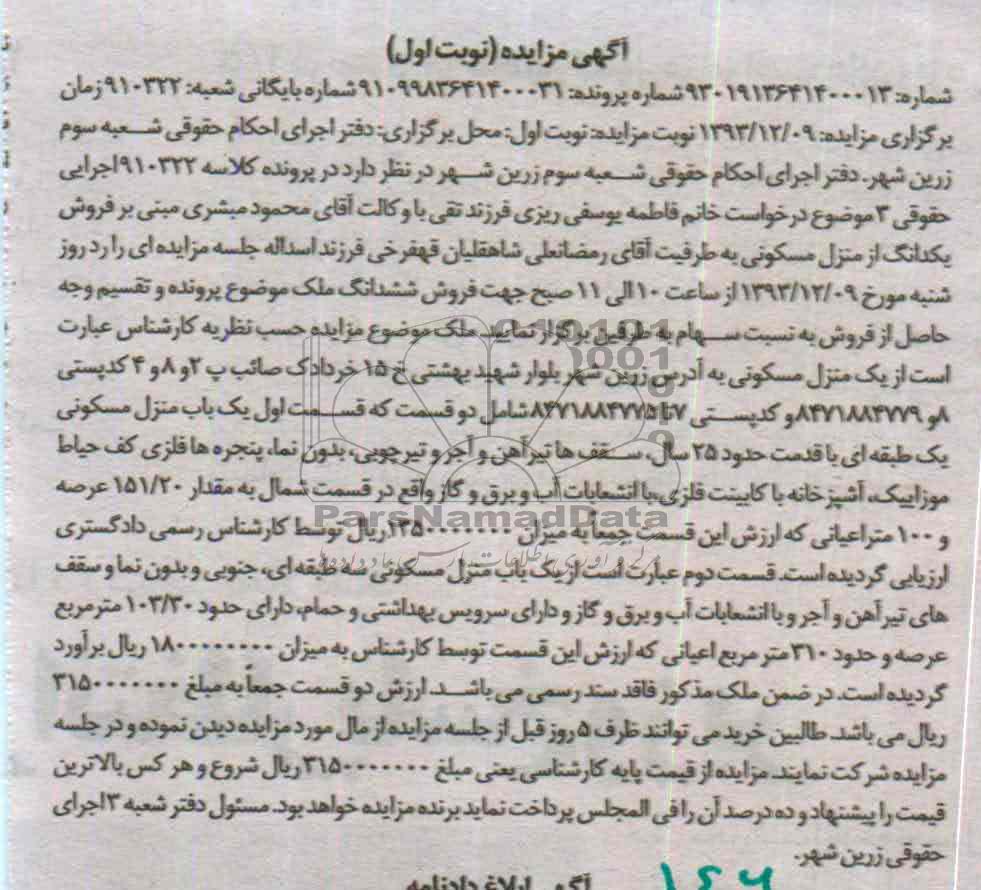 آگهی مزایده (نوبت اول)
شماره: ۹۳۰۱۹۱۳۶۴۱۴۰۰۰۱۳ شماره پرونده: ۹۱۰۹۹۸۳۶۴۱۴۰۰۰۳۱ شماره بایگانی شعبه: ۹۱۰۳۲۲ زمان
برگزاری مزایده: ۱۳۹۳/۱۲/۰۹ نوبت مزایده: نوبت اول: محل برگزاری: دفتر اجرای احکام حقوقی شعبه سوم
زرین شهر. دفتر اجرای احکام حقوقی شعبه سوم زرین شهر در نظر دارد در پرونده کلاسه ۹۱۰۳۲۲ اجرایی
حقوقی ۳ موضوع درخواست خانم فاطمه یوسفی ریزی فرزند تقی با وکالت آقای محمود مبشری مبنی بر فروش
یکدانگ از منزل مسکونی به طرفیت آقای رمضانعلی شاهقلیان قهفرخی فرزند اسداله جلسه مزایده ای را رد روز
شنبه مورخ ۱۳۹۳/۱۲/۰۹ از ساعت ۱۰ الی ۱۱ صبح جهت فروش ششدانگ ملک موضوع پرونده و تقسیم وجه
حاصل از فروش به نسبت سهام به طرفین برگزار نمایید. ملک موضوع مزایده حسب نظریه کارشناس عبارت
است از یک منزل مسکونی به آدرس زرین شهر بلوار شهید بهشتی خ ۱۵ خرداد ک صائب پ ۲ و ۸ و ۴ کدپستی
۸و ۸۴۷۱۸۸۴۷۷۹و کدپستی ۷تا ۸۴۷۱۸۸۴۷۷۵ شامل دو قسمت که قسمت اول یک باب منزل مسکونی
یک طبقه ای با قدمت حدود ۲۵ سال، سقف ها تیرآهن و آجر و تیرچوبی، بدون نما، پنجره ها فلزی کف حیاط
موزاییک، آشپزخانه با کابینت فلزی،با انشعابات آب و برق و گاز واقع در قسمت شمال به مقدار ۱۵۱/۲۰ عرصه
و ۱۰۰ متراعیانی که ارزش این قسمت جمعاً به میزان ۱۳۵۰۰۰۰۰۰۰ریال توسط کارشناس رسمی دادگستری
ParsNamadData
ارزیابی گردیده است. قسمت دوم عبارت است از یک باب منزل مسکونی سه طبقه ای، جنوبی و بدون نما و سقف
های تیرآهن و آجر و با انشعابات آب و برق و گاز و دارای سرویس بهداشتی و حمام، دارای حدود ۱۰۳/۳۰ مترمربع
عرصه و حدود ۳۱۰ متر مربع اعیانی که ارزش این قسمت توسط کارشناس به میزان ۱۸۰۰۰۰۰۰۰۰ ریال برآورد
گردیده است. در ضمن ملک مذکور فاقد سند رسمی می باشد. ارزش دو قسمت جمعاً به مبلغ ۳۱۵۰۰۰۰۰۰۰
ریال می باشد. طالبین خرید می توانند ظرف ۵ روز قبل از جلسه مزایده از مال مورد مزایده دیدن نموده و در جلسه
مزایده شرکت نمایند. مزایده از قیمت پایه کارشناسی یعنی مبلغ ۳۱۵۰۰۰۰۰۰۰ ریال شروع و هر کس بالاترین
قیمت را پیشنهاد و ده درصد آن را فی المجلس پرداخت نماید برنده مزایده خواهد بود. مسئول دفتر شعبه ۳ اجرای
حقوقی زرین شهر.